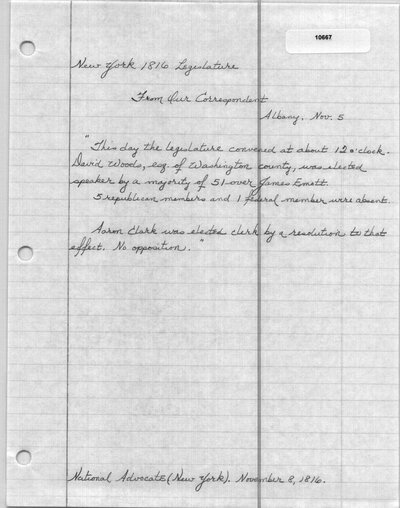 10667
New York 1816 Legislature
From Our Correspondent
Albany, Nov. 5
"This day the legislature convened at about 12 o'clock.
David Woods, esq. of Washington county, was elected
speaker by a majority of 51 over James Emott.
5 republican members and 1 federal member were absent.
Aaron Clark was elected clerk by a resolution to that
effect. No opposition."
National Advocate (New York). November 8, 1816.